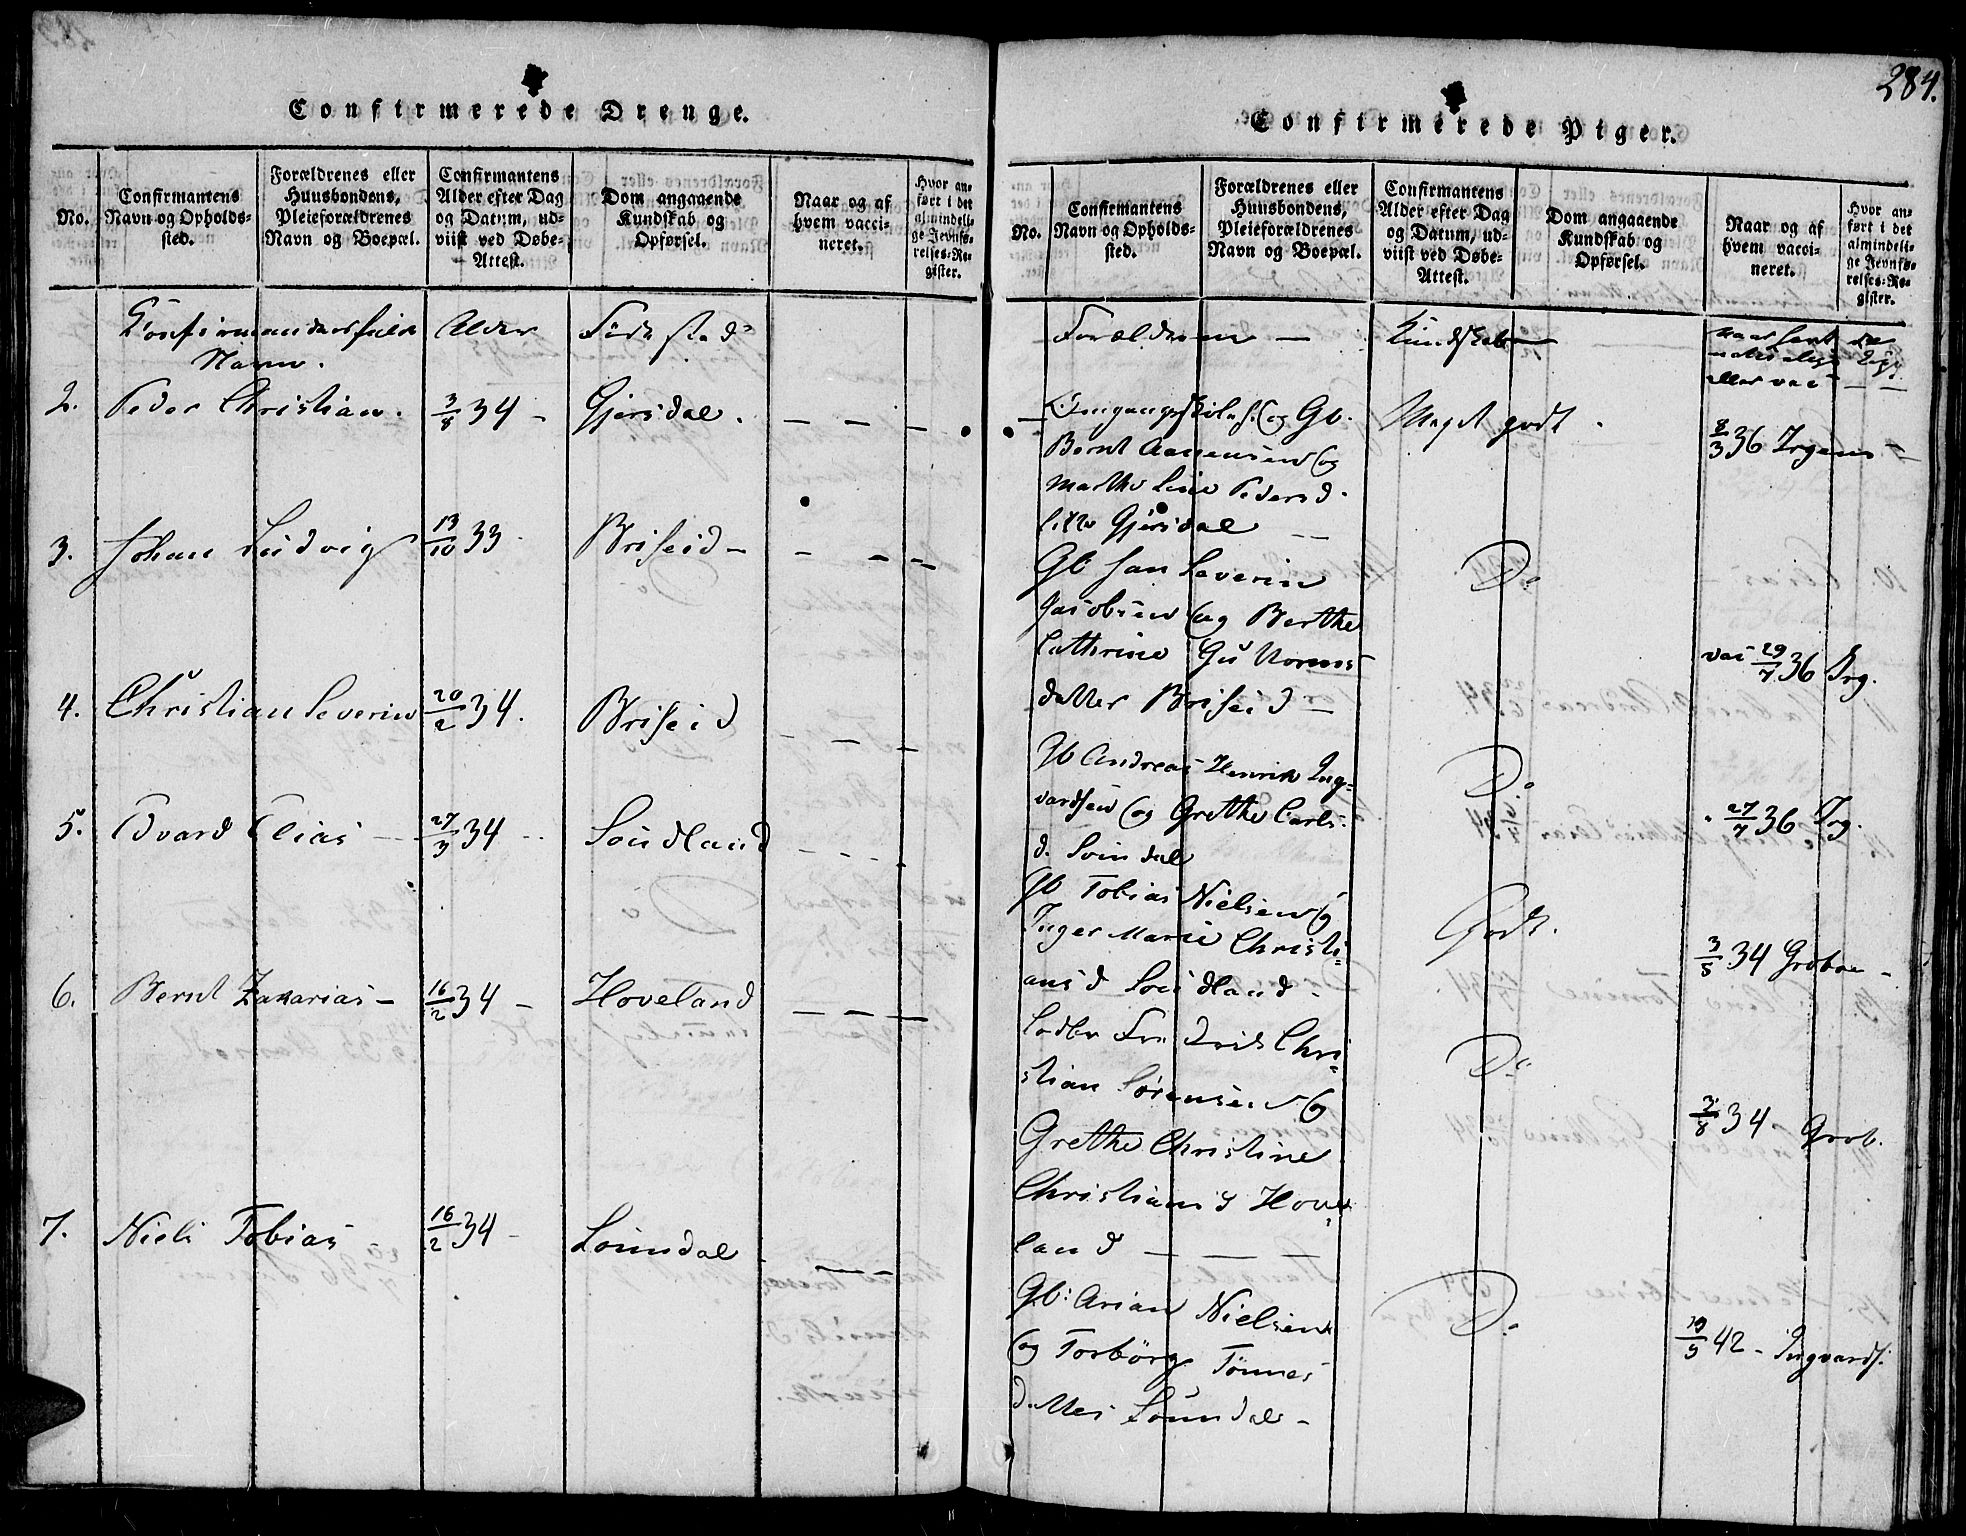 284.
Confirmerede Drenge.
No.
Confirmantens
Navn og Opholds-
sted.
Forældrenes eller
Huusbondens,
Pleieforældrenes
Navn og Boepæl.
Confirmantens
Alder efter Dag
og Datum, ud-
viist ved Døbe-
Attest.
Dom angaaende
Kundskab og
Opførsel.
Naar og af
hvem vacci-
neret.
Hvor an-
ført i det
almindeli-
ge Jevnfø-
relses-Re-
gister.
Alder
Navn.
2. Peder Christian. 3/8 34 – Gjersdal. – – –
3. Johan Ludvig 13/10 33 Briseid – – – –
4. Christian Severin 20/2 34. Briseid – – –
5. Edvard Elias – 27/3 34 Soudland – – –
6. Bernt Zakarias – 16/2 34 – Hoveland – – –
7. Niels Tobias 16/2 34 – Lounsdal – – –
Confirmerede Piger.
No.
Confirmantens
Navn og Opholds-
sted.
Forældrenes eller
Huusbondens,
Pleieforældrenes
Navn og Boepæl.
Confirmantens
Alder efter Dag
og Datum, ud-
viist ved Døbe-
Attest.
Dom angaaende
Kundskab og
Opførsel.
Naar og af
hvem vacci-
neret.
Hvor an-
ført i det
almindeli-
ge Jevnfø-
relses-Re-
gister.
Forældrene – Kundskab –
og Gb. Meget godt.
8/3 36 Irgens –
Bernt Aanensen og
Marthe Line Peders d.
Gjersdal
Gb Jan Severin Do
Jacobsen og Berthe
Cathrine Guttorms
datter Briseid –
vac 29/7 36 Irg.
Gb Andreas Henrik Ing-
vardsen og Grethe Carls-
d. Do
27/7 36 Irg.
Gb Tobias Nielsen og
Inger Marie Christi-
ans d Soudland – Godt.
3/8 34
Fredrik Chri-
stian Sørensen og
Grethe Christine
Christians d Hove-
land – – – Do
3/8 34. Grob.
Gb: Arian Nielsen
og Torborg Tønnes
datter Lounsdal – Do
19/9 42 – Ingvards.